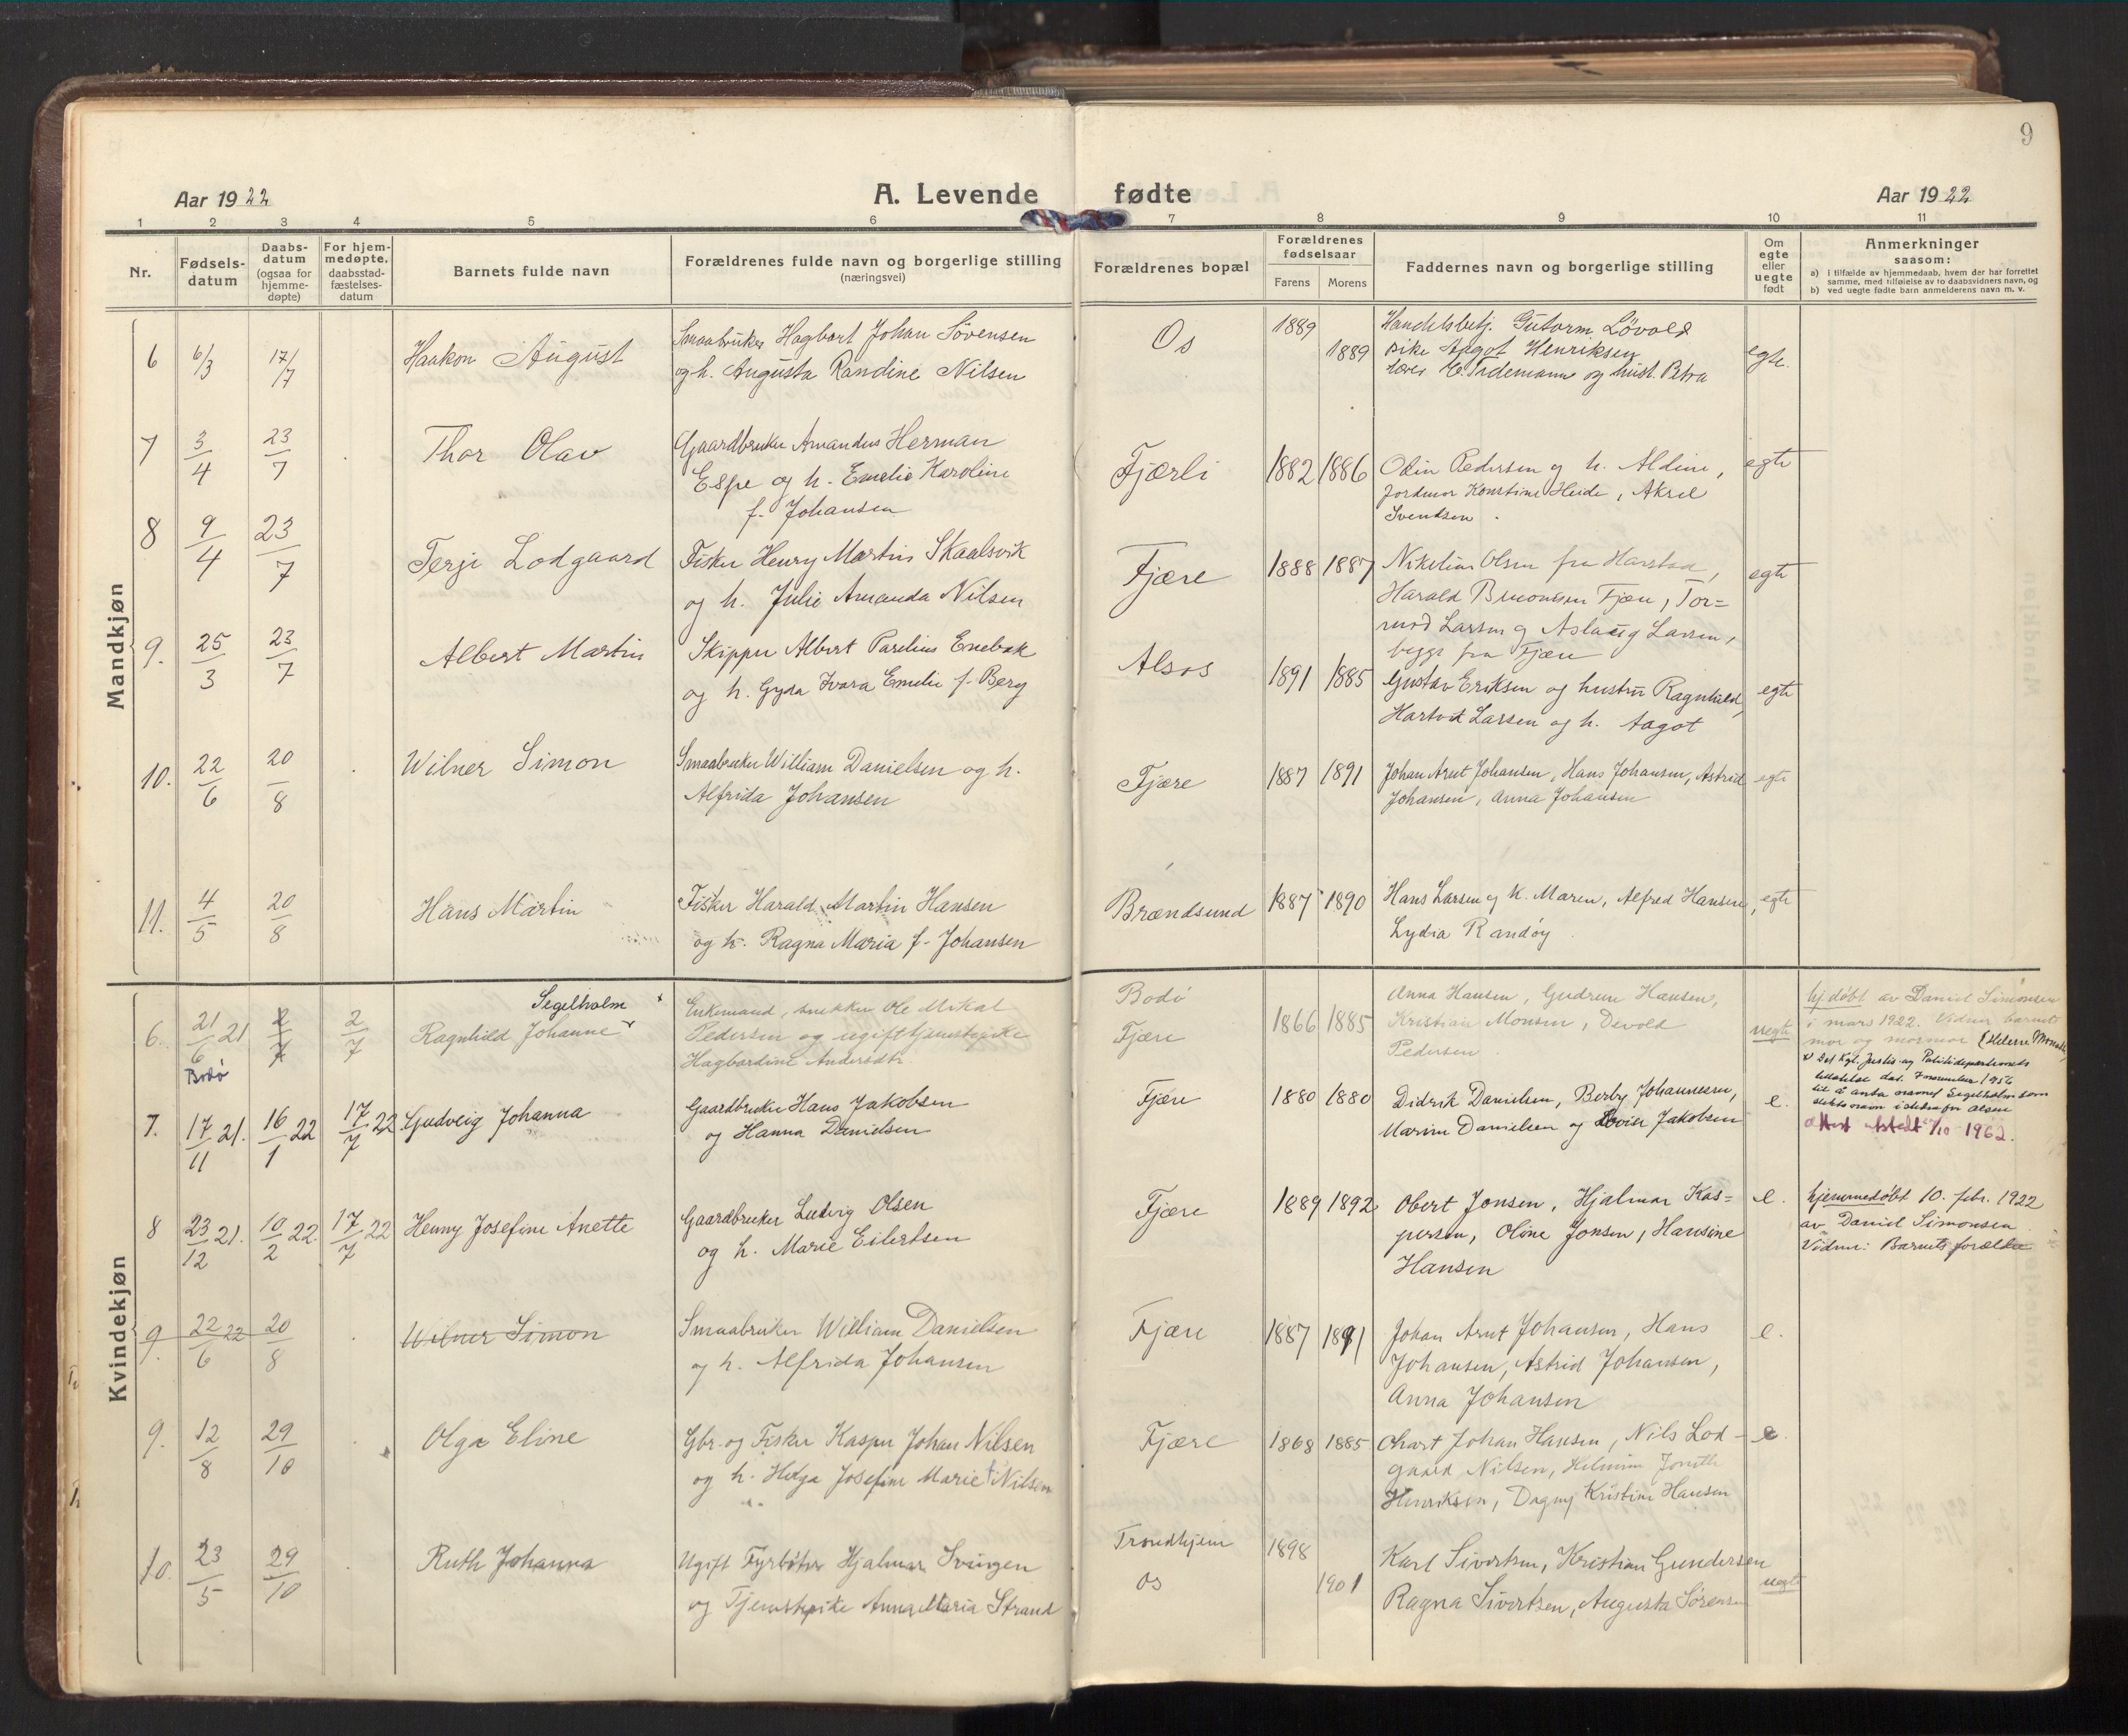 9
Aar 1922
A. Levende fødte
Aar 1922
1 2 3 4 5 6 7 8 9 10 11
Nr.
Fødsels-
datum
Daabs-
datum
(ogsaa for
hjemme-
døpte)
For hjem-
medøpte,
daabsstad-
fæstelses-
datum
Barnets fulde navn
Forældrenes fulde navn og borgerlige stilling
(næringsvei)
Forældrenes bopæl
Forældrenes
fødselsaar
Farens Morens
Faddernes navn og borgerlige stilling
Om
egte
eller
uegte
født
Anmerkninger
saasom:
a) i tilfælde av hjemmedaab, hvem der har forrettet
samme, med tilføielse av to daabsvidners navn, og
b) ved uegte fødte barn anmelderens navn m. v.
Mandkjøn
6 6/3 17/7 Haakon August
Smaabruker Hagbart Johan Sövensen
og h. Augusta Randine Nilsen
Os 1889 1889
Handelsbetj. Gutorm Lövold
pike Aagot Henriksen
lærer Tidemann og hust. Petra
egte.
7 3/4 23/7 Thor Olav
Gaardbruker Amandus Herman
Espe og h. Emelie Karoline
f. Johansen
Fjærli 1882 1886
Odin Pedersen og h. Aldine,
Jordmor Konstine Heide, Aksel
Svendsen.
egte
8 9/4 23/7 Terje Lodgaard
Fisker Henry Martin Skaalsvik
og h. Julie Amanda Nilsen
Fjære 1888 1887
Nikolias Olsen fra Harstad,
Harald Simonsen Fjære, Tor=
mod Larsen og Aslaug Larsen,
begge fra Fjære
egte
9. 25/3 23/7 Albert Martin
Skipper Albert Parelius Enebak
og h. Gyda Ivara Emelie f. Berg
Alsos 1891 1885
Gustav Eriksen og hustru Ragnhild,
Hartvik Larsen og h. Aagot
egte
10. 22/6 20/8 Wilner Simon
Smaabruker William Danielsen og h.
Alfrida Johansen
Fjære 1887 1891
Johan Arnt Johansen, Hans Johansen, Astrid
Johansen, Anna Johansen
egte
11. 4/5 20/8 Hans Martin
Fisker Harald Martin Hansen
og h. Ragna Maria f. Johansen
Brændsund 1887 1890
Hans Larsen og h. Maren, Alfred Hansen,
Lydia Randöy
egte
Kvindekjøn
6. 21/6 21 2/7 2/7
Bodø
Segelholm x
Ragnhild Johanne
Enkemand, snekker Ole Mikal
Pedersen og ugift tjenestepike
Hagbardine Andersdtr.
Bodö
Fjære
1866 1885
Anna Hansen, Gudrun Hansen,
Kristian Monsen, Devold
Pedersen
uegte
hj. döbt av Daniel Simonsen
i mars 1922. Vidner barnets
mor og mormor
x Det Kgl. Justis- og Politidepartements
tillatelse dat. 7 november 1956
til å anta navnet Segelholm som
slektsnavn istedenfor Olsen
attest utstedt 5/10 1962.
7. 17/11 21. 16/1 22 17/7 22 Gudveig Johanna
Gaardbruker Hans Jakobsen
og Hanna Danielsen
Fjære 1880 1880
Didrik Danielsen, Berby Johannesen,
Marine Danielsen og Lovise Jakobsen
e.
8 23/12 21. 10/2 22. 17/7 22 Henny Josefine Anette
Gaardbruker Ludvig Olsen
og h. Marie Eilertsen
Fjære 1889 1892
Obert Jonsen, Hjalmar Kas=
persen, Oline Jonsen, Hansine
Hansen
e.
hjemmedøbt 10. febr. 1922
av Daniel Simonsen
Vidner: Barnets forældre
9. 22/6 22 20/8 Wilner Simon
Smaabruker William Danielsen
og h. Alfrida Johansen
Fjære 1887 1891
Johan Arnt Johansen, Hans
Johansen, Astrid Johansen,
Anna Johansen
e.
9. 12/8 29/10 Olga Eline
Gbr. og Fisker Kasper Johan Nilsen
og h. Helga Josefine Marie Nilsen
Fjære 1868 1885
Johan Hansen, Nils Lod-
gaard Nilsen,
Henriksen, Dagny Kristine Hansen
e.
10. 23/5 29/10 Ruth Johanna
Ugift Fyrbøter Hjalmar Svingen
og Tjenestepike Anna Maria Strand
Trondhjem
Os
1898
1901
Karl Sivertsen, Kristian Gundersen
Ragna Sivertsen, Augusta Sörensen
uegte